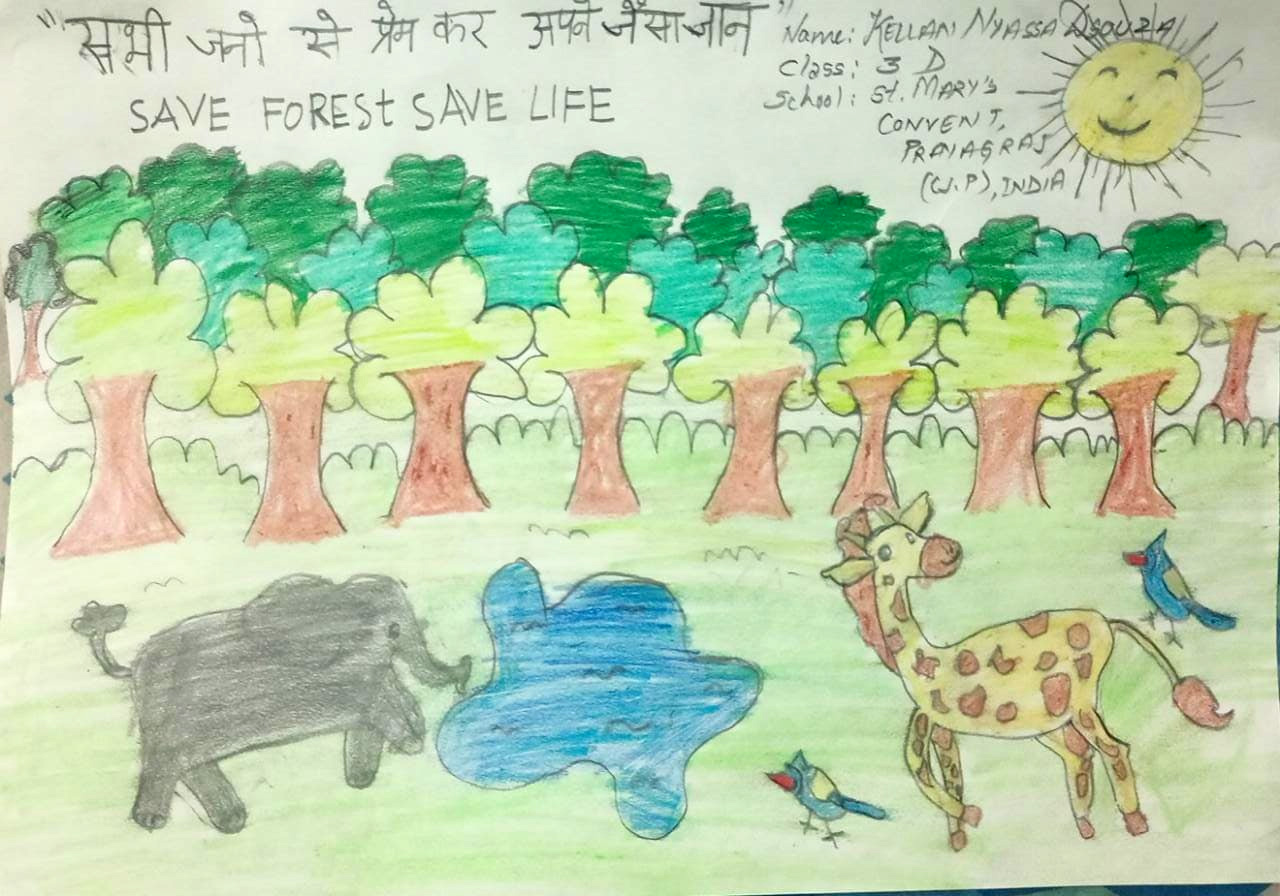 "सभी जनो से प्रेम कर अपने जैसा जान"
SAVE FOREST SAVE LIFE
Name: KELLAN NYASSA DSOUZA
Class: 3 D
School: St. MARY'S
CONVENT,
PRAYAGRAJ
(U.P), INDIA